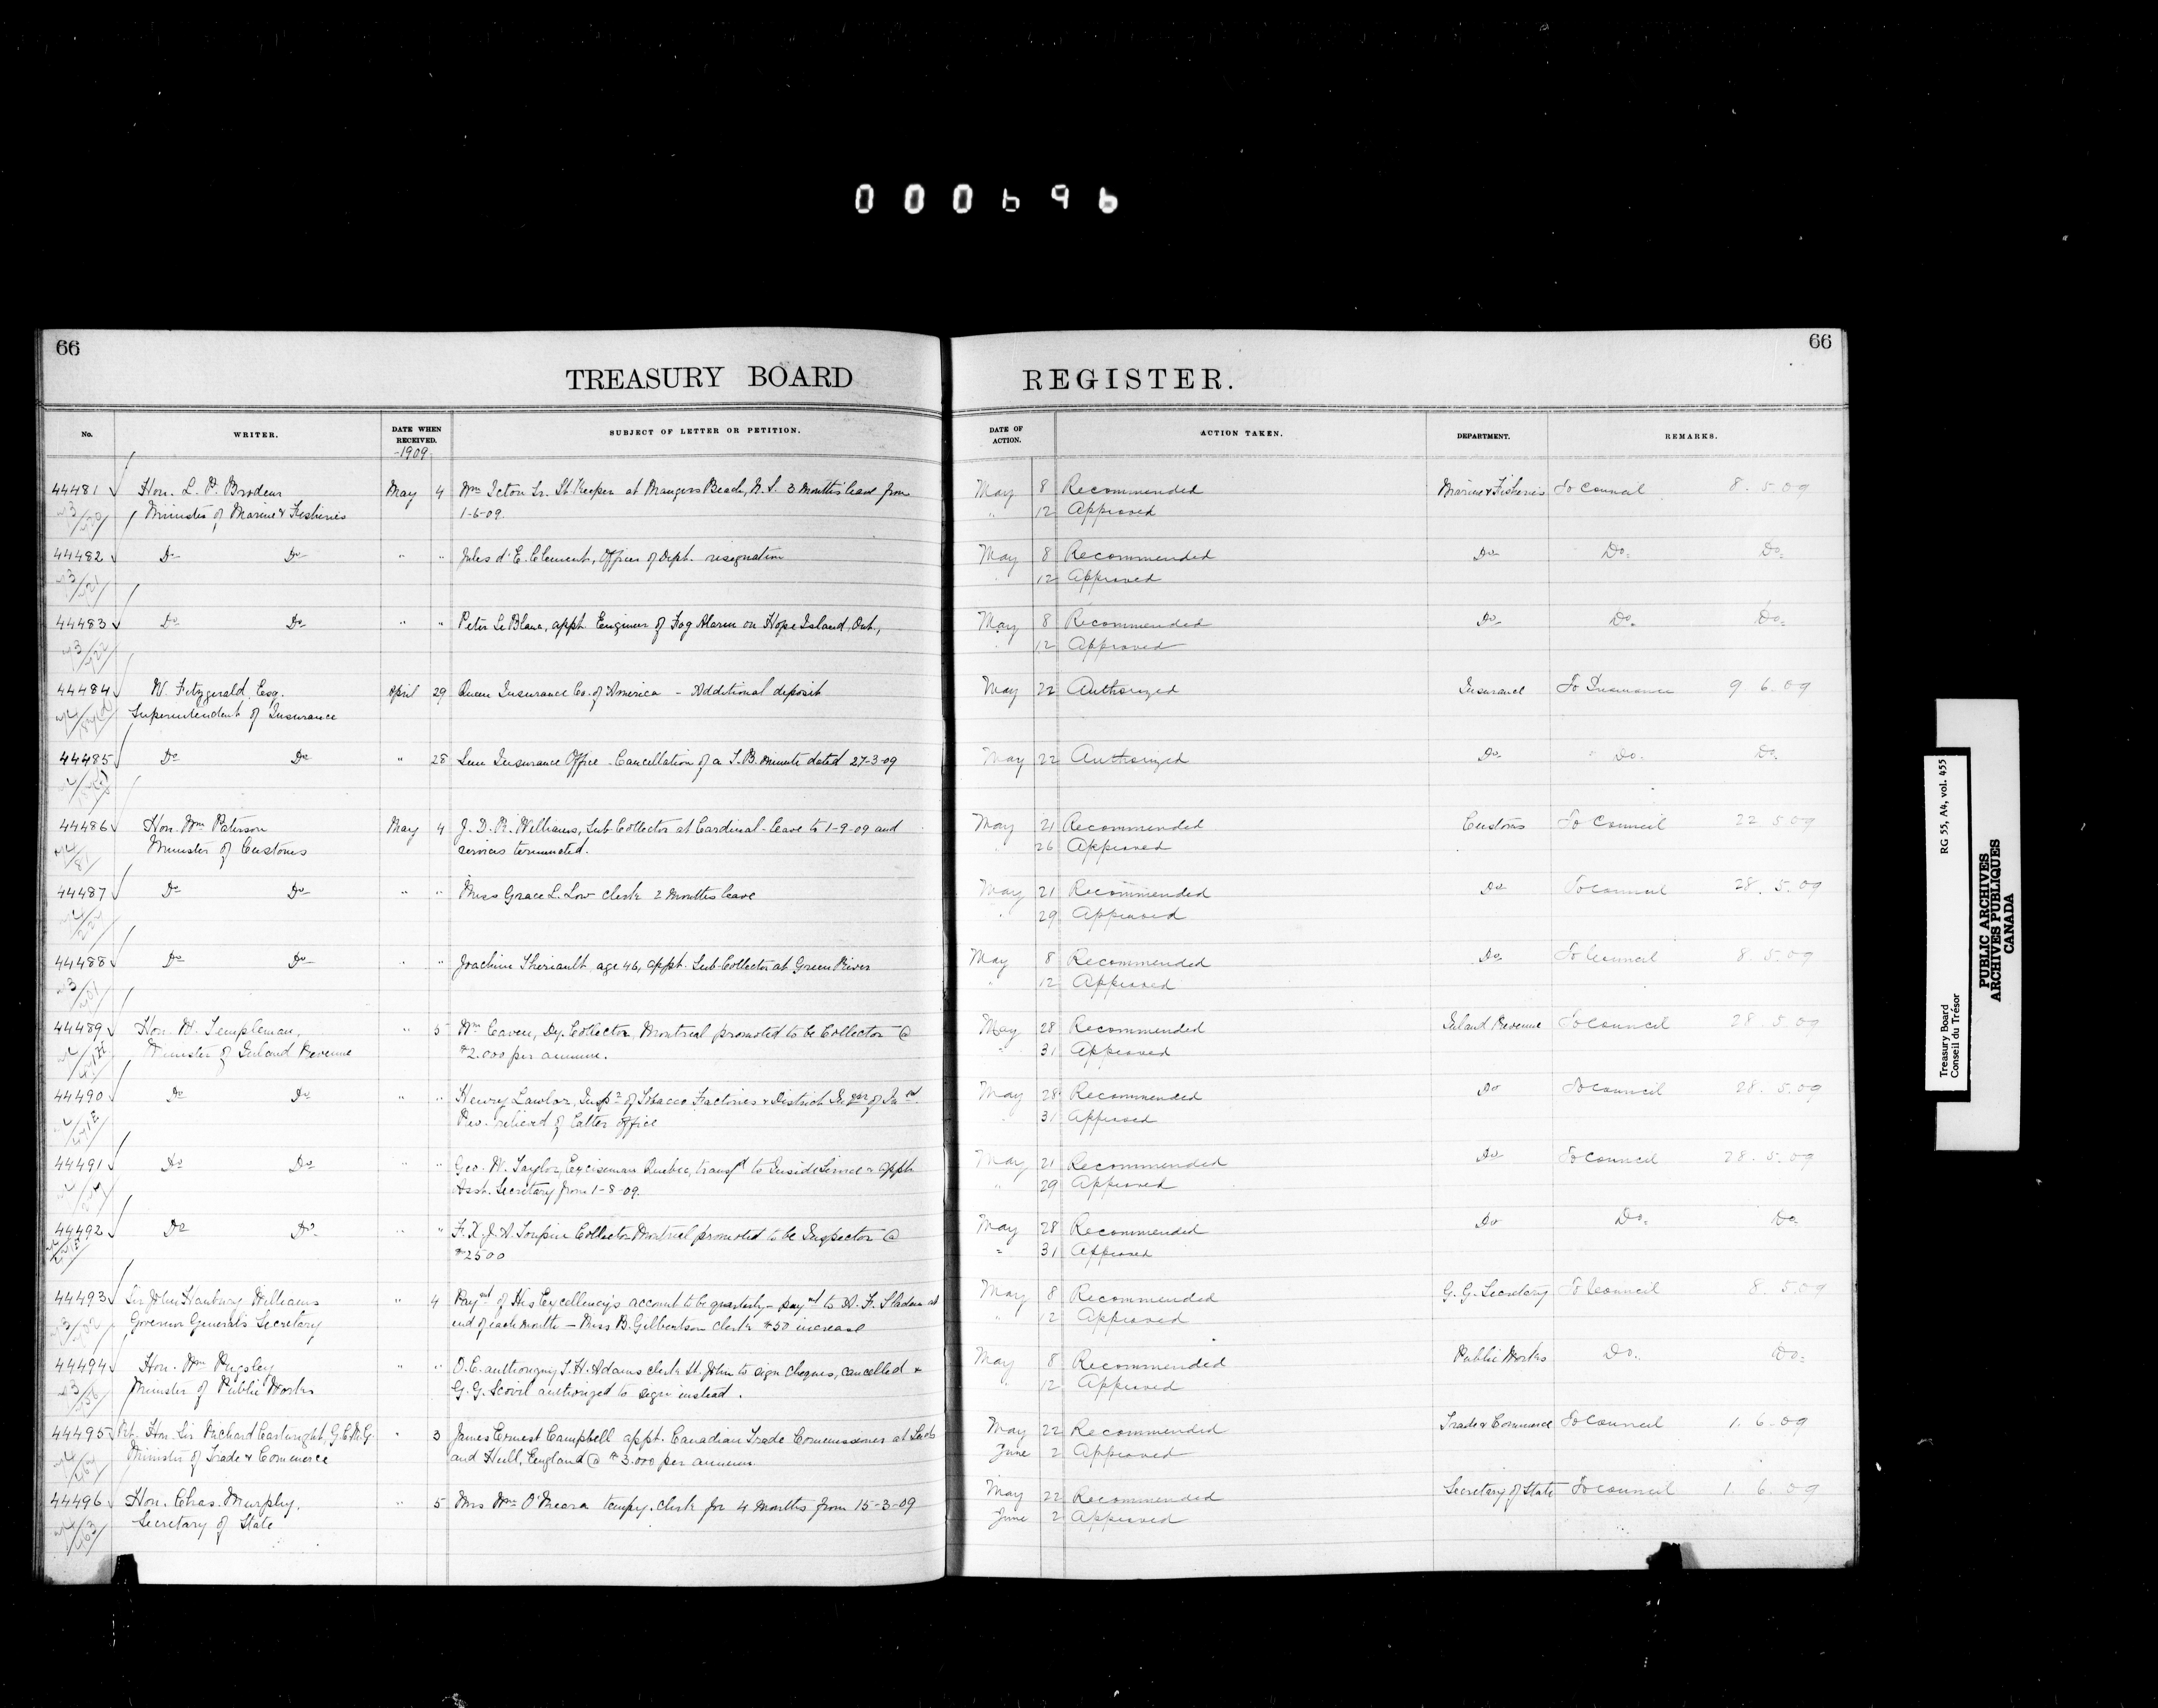 000696
66
66
TREASURY BOARD REGISTER.
No. WRITER. DATE WHEN RECEIVED. SUBJECT OF LETTER OR PETITION. DATE OF ACTION. ACTION TAKEN. DEPARTMENT. REMARKS.
-1909-
44481 Hon. L. P. Brodeur May 4 Wm Icton Sr. Lt. Keeper at Mangers Beach, N.S. 3 months' leave from May 8 Recommended Marine & Fisheries To Council 8.5.09
Minister of Marine & Fisheries 1-6-09. " 12 Approved
44482 Do Do " " Jules d'E. Clement, Officer of Dept. resignation May 8 Recommended Do Do. Do.
12 Approved
44483 Do Do " " Peter Le Blanc, appt. Engineer of Fog Alarm on Hope Island, Ont., May 8 Recommended Do Do. Do.
12 Approved
44484 W. Fitzgerald, Esq. April 29 Queen Insurance Co. of America - Additional deposit May 22 Authorized Insurance To Insurance 9.6.09
Superintendent of Insurance
44485 Do Do " 28 Sun Insurance Office - Cancellation of a T.B. Minute dated 27-3-09 May 22 Authorized Do. Do. Do.
44486 Hon. Wm Paterson May 4 J. D. R. Williams, Sub-Collector at Cardinal - Leave to 1-9-09 and May 21 Recommended Customs To Council 22.5.09
Minister of Customs services terminated. 26 Approved
44487 Do Do " " Miss Grace L. Low clerk 2 months leave May 21 Recommended Do To Council 28.5.09
29 Approved
44488 Do Do " " Joachim Theriault, age 46, appt. Sub-Collector at Green River May 8 Recommended Do To Council 8.5.09
12 Approved
44489 Hon. W. Templeman, " 5 Wm Caven, Dy. Collector, Montreal promoted to be Collector @ May 28 Recommended Inland Revenue To Council 28.5.09
Minister of Inland Revenue $2.000 per annum. 31 Approved
44490 Do Do " " Henry Lawlor, Inspr of Tobacco Factories & District of May 28 Recommended Do To Council 28.5.09
Rev. relieved of latter office 31 Approved
44491 Do Do " " Geo. W. Taylor, Exciseman Quebec, transfd to Inside Service & appt. May 21 Recommended Do To Council 28.5.09
Asst. Secretary from 1-8-09. " 29 Approved
44492 Do Do. " " F. X. J. A. Toupin Collector Montreal promoted to be Inspector @ May 28 Recommended Do Do. Do.
$2500 " 31 Approved
44493 Sir John Hanbury Williams " 4 Paynt of His Excellency's account to be quarterly - paynt to A. F. Sladen at May 8 Recommended G. G. Secretary To Council 8.5.09
Governor General's Secretary end of each month - Miss B. Gilbertson clerk $50 increase " 12 Approved
44494 Hon. Wm Pugsley " " O.C. authorizing T. H. Adams clerk St. John to sign cheques, cancelled & May 8 Recommended Public Works Do. Do.
Minister of Public Works G. G. Scovil authorized to sign instead. 12 Approved
44495 Rt. Hon. Sir Richard Cartwright, G.C.M.G. " 3 James Ernest Campbell appt. Canadian Trade Commissioner at Leeds May 22 Recommended Trade & Commerce To Council 1.6.09
Minister of Trade & Commerce and Hull, England @ $3.000 per annum June 2 Approved
44496 Hon. Chas. Murphy. " 5 Mrs Wm O'Meara tempy. clerk for 4 months from 15-3-09 May 22 Recommended Secretary of State To Council 1.6.09
Secretary of State June 2 Approved
Treasury Board RG 55, A4, vol. 455
Conseil du Trésor
PUBLIC ARCHIVES
ARCHIVES PUBLIQUES
CANADA